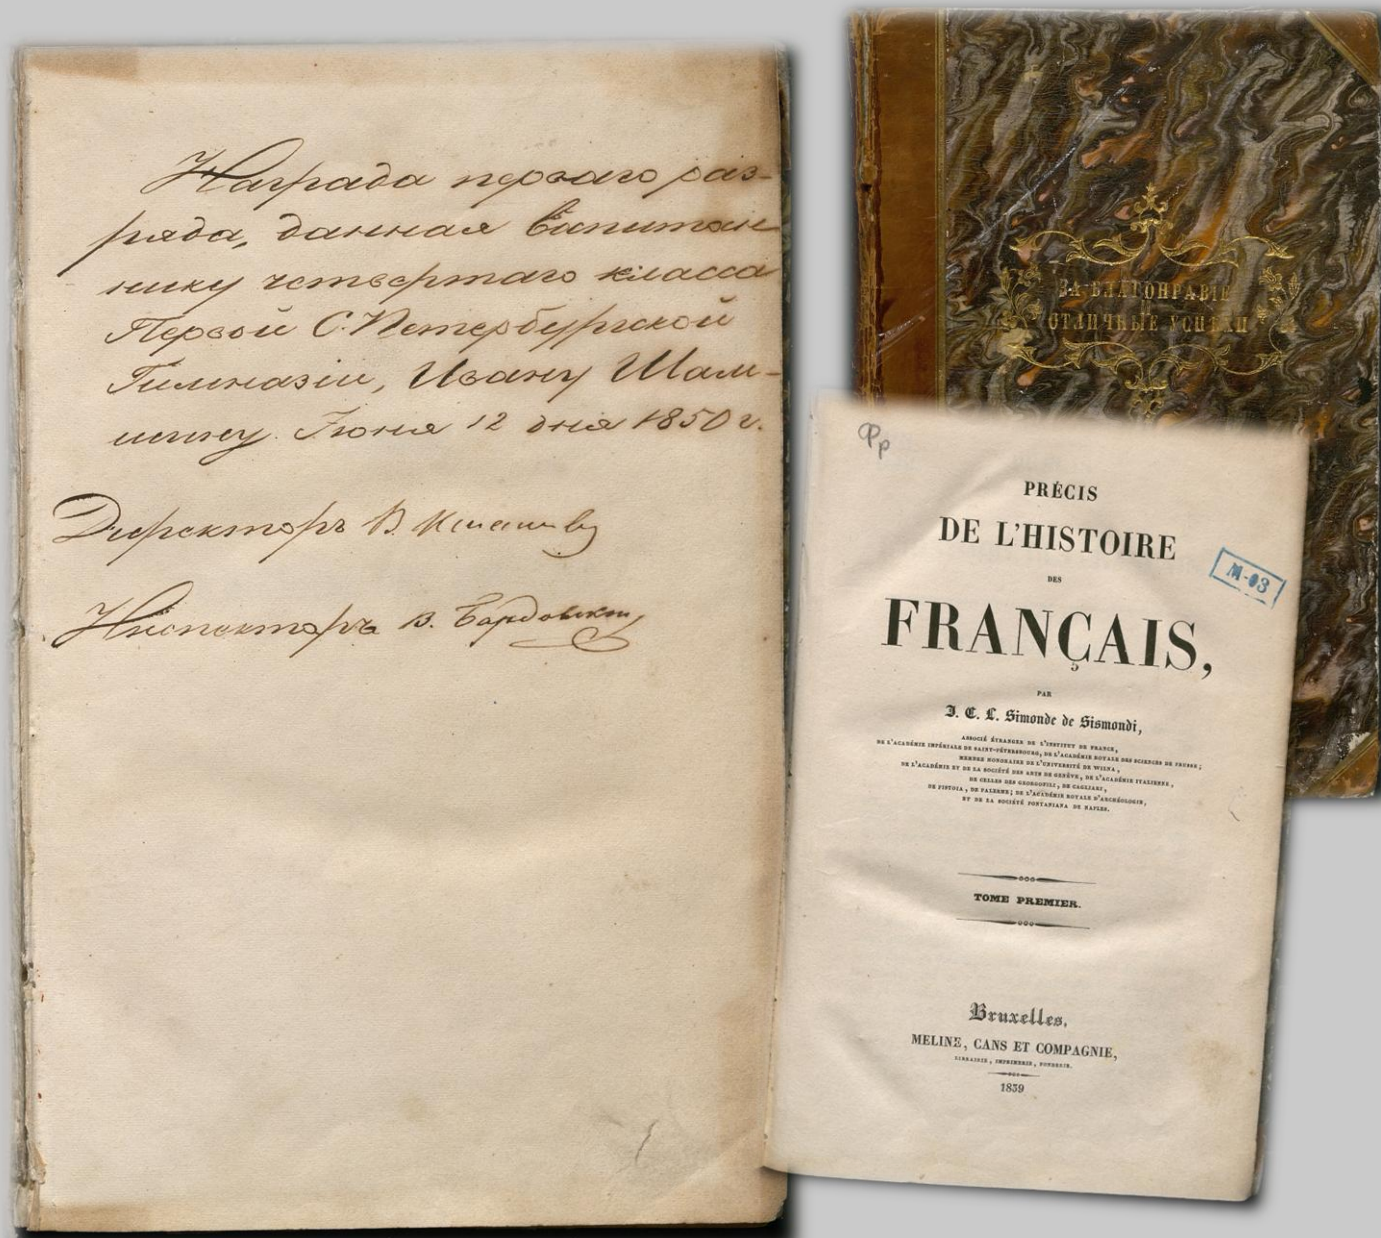 Награда перваго раз-
ряда, данная воспитан-
нику четвертаго класса
Первой С. Петербургской
Гимназіи, Ивану Шам-
шину. Іюня 12 дня 1850 г.
Директоръ В.
Инспекторъ В. Бардовскій
ЗА БЛАГОНРАВІЕ
И
ОТЛИЧНЫЕ УСПѢХИ
Фр
PRÉCIS
DE L'HISTOIRE
DES
FRANÇAIS,
M-03
PAR
J. C. L. Simonde de Sismondi,
ASSOCIÉ ÉTRANGER DE L'INSTITUT DE FRANCE,
DE L'ACADÉMIE IMPÉRIALE DE SAINT-PÉTERSBOURG, DE L'ACADÉMIE ROYALE DES SCIENCES DE PRUSSE;
MEMBRE HONORAIRE DE L'UNIVERSITÉ DE WILNA,
DE L'ACADÉMIE ET DE LA SOCIÉTÉ DES ARTS DE GENÈVE, DE L'ACADÉMIE ITALIENNE,
DE CELLES DES GEORGOFILI, DE CAGLIARI,
DE PISTOIA, DE PALERME; DE L'ACADÉMIE ROYALE D'ARCHÉOLOGIE,
ET DE LA SOCIÉTÉ PONTANIANA DE NAPLES.
TOME PREMIER.
Bruxelles,
MELINE, CANS ET COMPAGNIE,
LIBRAIRIE, IMPRIMERIE, FONDERIE.
1839